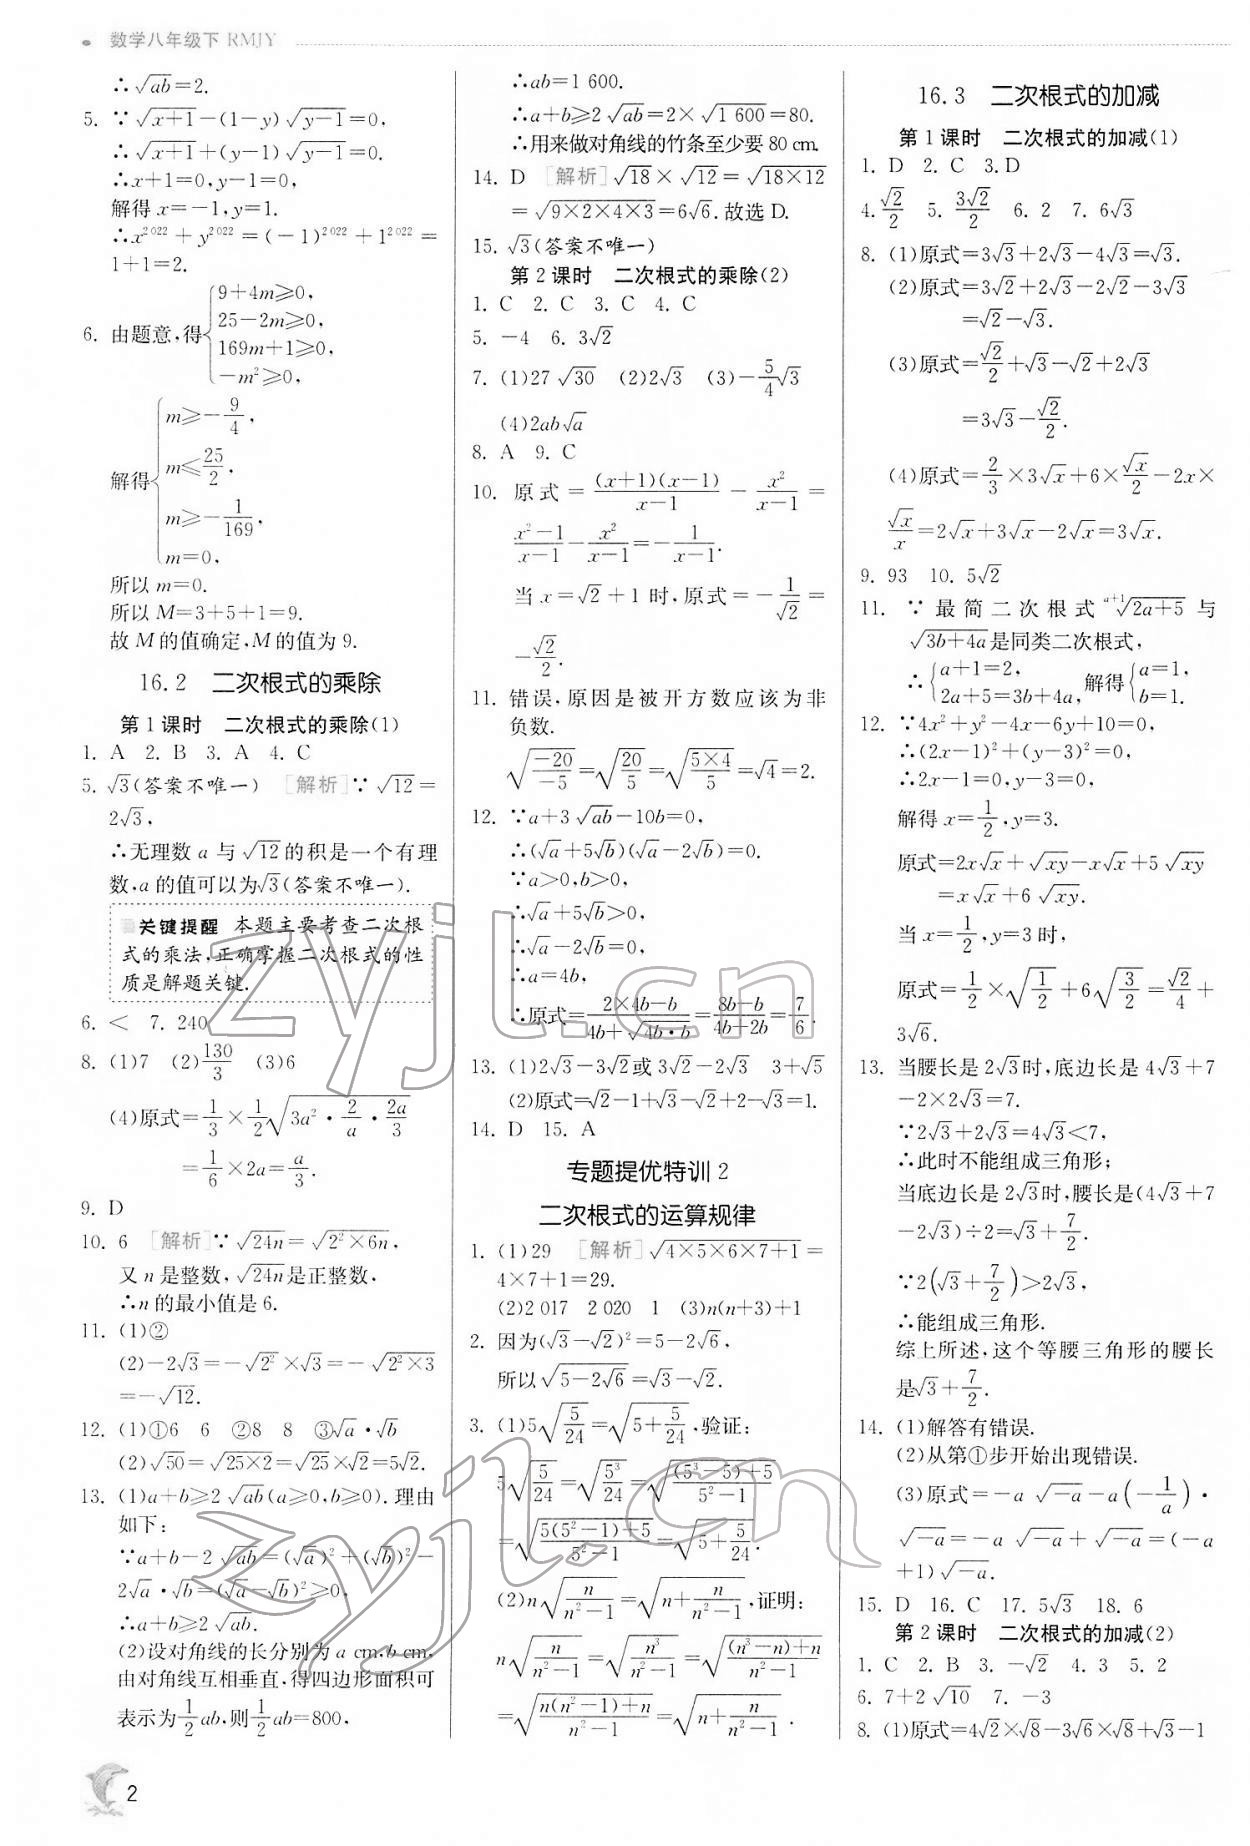 数学八年级下 RMJY
∴√ab=2.
5. ∵√x+1-(1-y)√y-1=0,
∴√x+1+(y-1)√y-1=0.
∴x+1=0,y-1=0.
解得 x=-1,y=1.
∴x²⁰²²+y²⁰²²=(-1)²⁰²²+1²⁰²²=
1+1=2.
6. 由题意,得{9+4m≥0,
25-2m≥0,
169m+1≥0,
-m²≥0,
解得{m≥-9/4,
m≤25/2,
m≥-1/169,
m=0,
所以 m=0.
所以 M=3+5+1=9.
故 M 的值确定,M 的值为 9.
16.2 二次根式的乘除
第 1 课时 二次根式的乘除(1)
1. A 2. B 3. A 4. C
5. √3(答案不唯一) [解析]∵√12=
2√3,
∴无理数 a 与√12的积是一个有理
数,a 的值可以为√3(答案不唯一).
关键提醒 本题主要考查二次根
式的乘法,正确掌握二次根式的性
质是解题关键.
6. < 7. 240
8. (1)7 (2)130/3 (3)6
(4)原式=1/3×1/2√(3a²·2/a·2a/3)
=1/6×2a=a/3.
9. D
10. 6 [解析]∵√24n=√(2²×6n),
又 n 是整数,√24n是正整数,
∴n 的最小值是 6.
11. (1)②
(2)-2√3=-√2²×√3=-√(2²×3)
=-√12.
12. (1)①6 6 ②8 8 ③√a·√b
(2)√50=√(25×2)=√25×√2=5√2.
13. (1)a+b≥2√ab(a≥0,b≥0).理由
如下:
∵a+b-2√ab=(√a)²+(√b)²-
2√a·√b=(√a-√b)²≥0,
∴a+b≥2√ab.
(2)设对角线的长分别为 a cm,b cm,
由对角线互相垂直,得四边形面积可
表示为1/2ab,则1/2ab=800,
∴ab=1 600.
∴a+b≥2√ab=2×√1 600=80.
∴用来做对角线的竹条至少要 80 cm.
14. D [解析]√18×√12=√(18×12)
=√(9×2×4×3)=6√6.故选 D.
15. √3(答案不唯一)
第 2 课时 二次根式的乘除(2)
1. C 2. C 3. C 4. C
5. -4 6. 3√2
7. (1)27√30 (2)2√3 (3)-5/4√3
(4)2ab√a
8. A 9. C
10. 原式=(x+1)(x-1)/(x-1)-x²/(x-1)=
(x²-1)/(x-1)-x²/(x-1)=-1/(x-1).
当 x=√2+1 时,原式=-1/√2=
-√2/2.
11. 错误,原因是被开方数应该为非
负数.
√(-20/-5)=√(20/5)=√(5×4/5)=√4=2.
12. ∵a+3√ab-10b=0,
∴(√a+5√b)(√a-2√b)=0.
∵a>0,b>0,
∴√a+5√b>0,
∴√a-2√b=0,
∴a=4b,
∴原式=(2×4b-b)/(4b+√(4b·b))=(8b-b)/(4b+2b)=7/6.
13. (1)2√3-3√2或 3√2-2√3 3+√5
(2)原式=√2-1+√3-√2+2-√3=1.
14. D 15. A
专题提优特训 2
二次根式的运算规律
1. (1)29 [解析]√(4×5×6×7+1)=
4×7+1=29.
(2)2 017 2 020 1 (3)n(n+3)+1
2. 因为(√3-√2)²=5-2√6,
所以√(5-2√6)=√3-√2.
3. (1)5√(5/24)=√(5+5/24),验证:
5√(5/24)=√(5³/24)=√(((5³-5)+5)/(5²-1))
=√((5(5²-1)+5)/(5²-1))=√(5+5/24).
(2)n√(n/(n²-1))=√(n+n/(n²-1)),证明:
n√(n/(n²-1))=√(n³/(n²-1))=√(((n³-n)+n)/(n²-1))
=√((n(n²-1)+n)/(n²-1))=√(n+n/(n²-1)).
16.3 二次根式的加减
第 1 课时 二次根式的加减(1)
1. D 2. C 3. D
4. √2/2 5. 3√2/2 6. 2 7. 6√3
8. (1)原式=3√3+2√3-4√3=√3.
(2)原式=3√2+2√3-2√2-3√3
=√2-√3.
(3)原式=√2/2+√3-√2+2√3
=3√3-√2/2.
(4)原式=2/3×3√x+6×√x/2-2x×
√x/x=2√x+3√x-2√x=3√x.
9. 93 10. 5√2
11. ∵最简二次根式 ᵃ⁺¹√(2a+5) 与
√(3b+4a)是同类二次根式,
∴{a+1=2,
2a+5=3b+4a, 解得{a=1,
b=1.
12. ∵4x²+y²-4x-6y+10=0,
∴(2x-1)²+(y-3)²=0,
∴2x-1=0,y-3=0,
解得 x=1/2,y=3.
原式=2x√x+√xy-x√x+5√xy
=x√x+6√xy.
当 x=1/2,y=3 时,
原式=1/2×√(1/2)+6√(3/2)=√2/4+
3√6.
13. 当腰长是 2√3时,底边长是 4√3+7
-2×2√3=7.
∵2√3+2√3=4√3<7,
∴此时不能组成三角形;
当底边长是 2√3时,腰长是(4√3+7
-2√3)÷2=√3+7/2.
∵2(√3+7/2)>2√3,
∴能组成三角形.
综上所述,这个等腰三角形的腰长
是√3+7/2.
14. (1)解答有错误.
(2)从第①步开始出现错误.
(3)原式=-a√-a-a(-1/a)·
√-a=-a√-a+√-a=(-a
+1)√-a.
15. D 16. C 17. 5√3 18. 6
第 2 课时 二次根式的加减(2)
1. C 2. B 3. -√2 4. 3 5. 2
6. 7+2√10 7. -3
8. (1)原式=4√2×√8-3√6×√8+√3-1
2
zyjl.cn
zyjl.cn